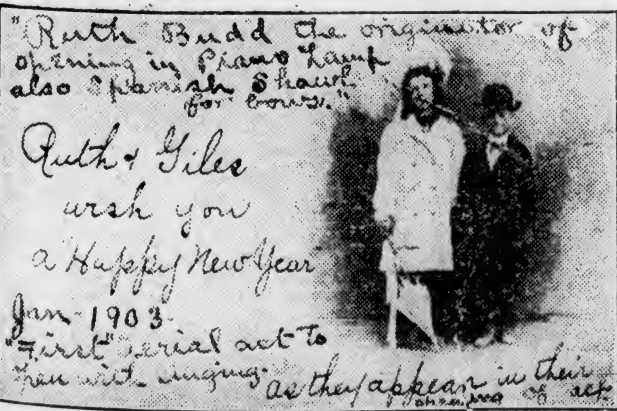 "Ruth Budd the originator of
opening in Piano Lamp
also Spanish Shawl
for bows."
Ruth & Giles
wish you
a Happy New Year
Jan - 1903
"First" aerial act to
open with singing.
as they appear in their
opening of act